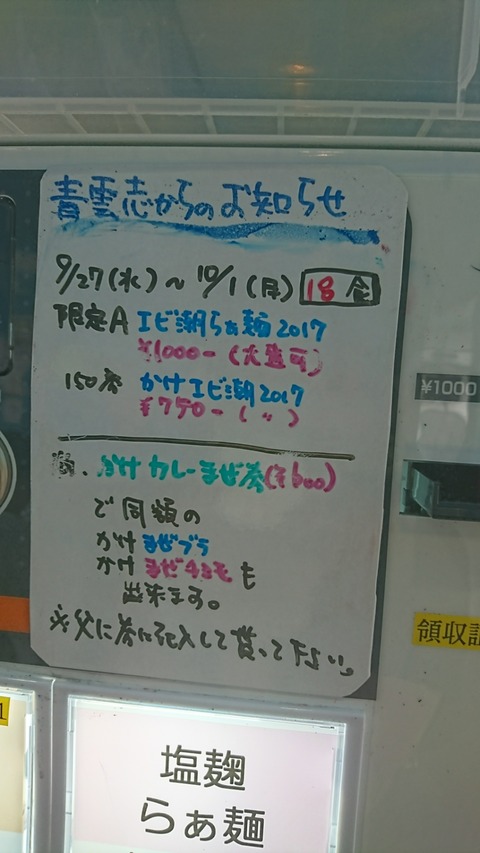 青雲志からのお知らせ
9/27(水)～10/1(月) 18食
限定A エビ潮らぁ麺2017
¥1000-(大盛可)
150券 かけエビ潮2017
¥750-(〃)
かけカレーまぜ券(¥600)
で同額の
かけまぜブラ
かけまぜチョモも
出来ます。
※父に券に記入して貰って下さい。
¥1000
領収証
1
塩麹
らぁ麺